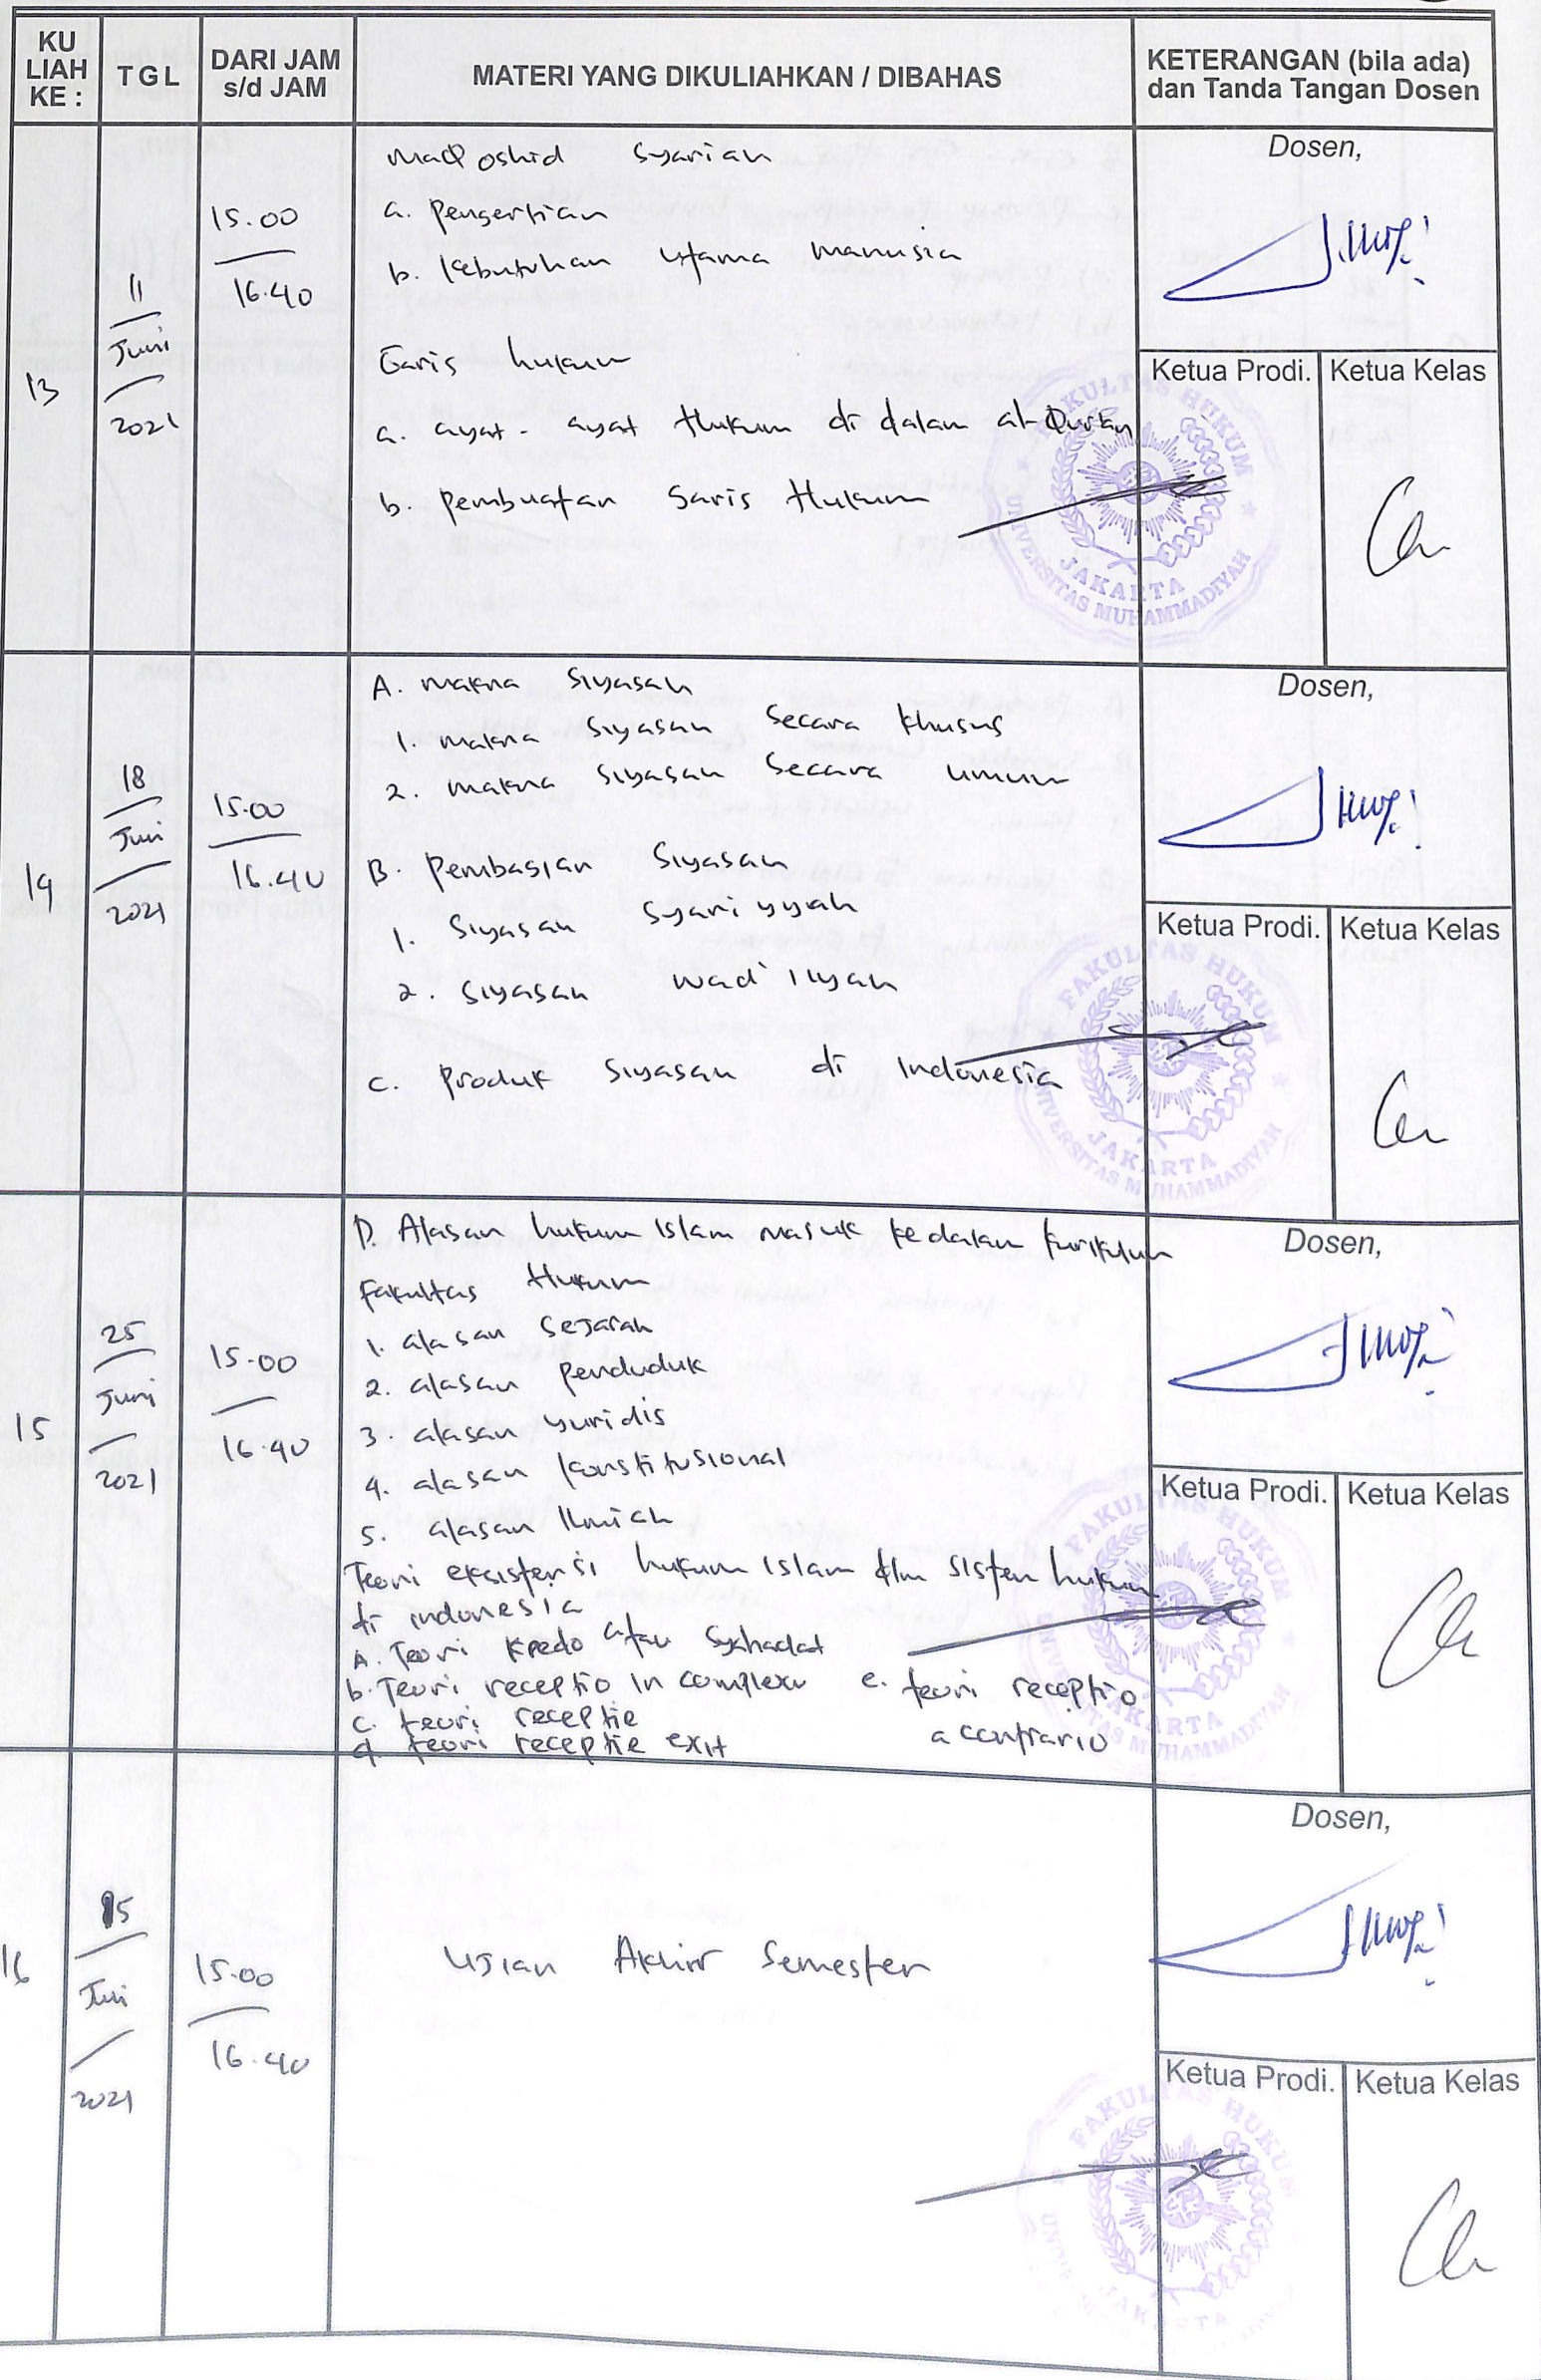 KU
LIAH
KE :
TGL
DARI JAM
s/d JAM
MATERI YANG DIKULIAHKAN / DIBAHAS
KETERANGAN (bila ada)
dan Tanda Tangan Dosen
13
11
Juni
2021
15.00
16.40
Maqoshid Syariah
a. Pengertian
b. Kebutuhan utama manusia
Garis hukum
a. ayat-ayat Hukum di dalam al-Qur'an
b. Pembuatan Garis Hukum
Dosen,
Ketua Prodi.
Ketua Kelas
FAKULTAS HUKUM
JAKARTA
UNIVERSITAS MUHAMMADIYAH
14
18
Juni
2021
15.00
16.40
A. Makna Siyasah
1. Makna Siyasah Secara Khusus
2. Makna Siyasah Secara umum
B. Pembagian Siyasah
1. Siyasah Syariyyah
2. Siyasah Wad'iiyah
C. Produk Siyasah di Indonesia
Dosen,
Ketua Prodi.
Ketua Kelas
FAKULTAS HUKUM
JAKARTA
UNIVERSITAS MUHAMMADIYAH
15
25
Juni
2021
15.00
16.40
D. Alasan hukum Islam masuk kedalam kurikulum
Fakultas Hukum
1. alasan Sejarah
2. alasan penduduk
3. alasan yuridis
4. alasan konstitusional
5. alasan Ilmiah
Teori eksistensi hukum Islam dlm sistem hukum
di indonesia
A. Teori Kredo atau Syahadat
b. Teori receptio in complexu
c. teori receptie
d. teori receptie exit
e. teori receptio
a contrario
Dosen,
Ketua Prodi.
Ketua Kelas
FAKULTAS HUKUM
JAKARTA
UNIVERSITAS MUHAMMADIYAH
16
15
2021
15.00
16.40
Ujian Akhir Semester
Dosen,
Ketua Prodi.
Ketua Kelas
FAKULTAS HUKUM
JAKARTA